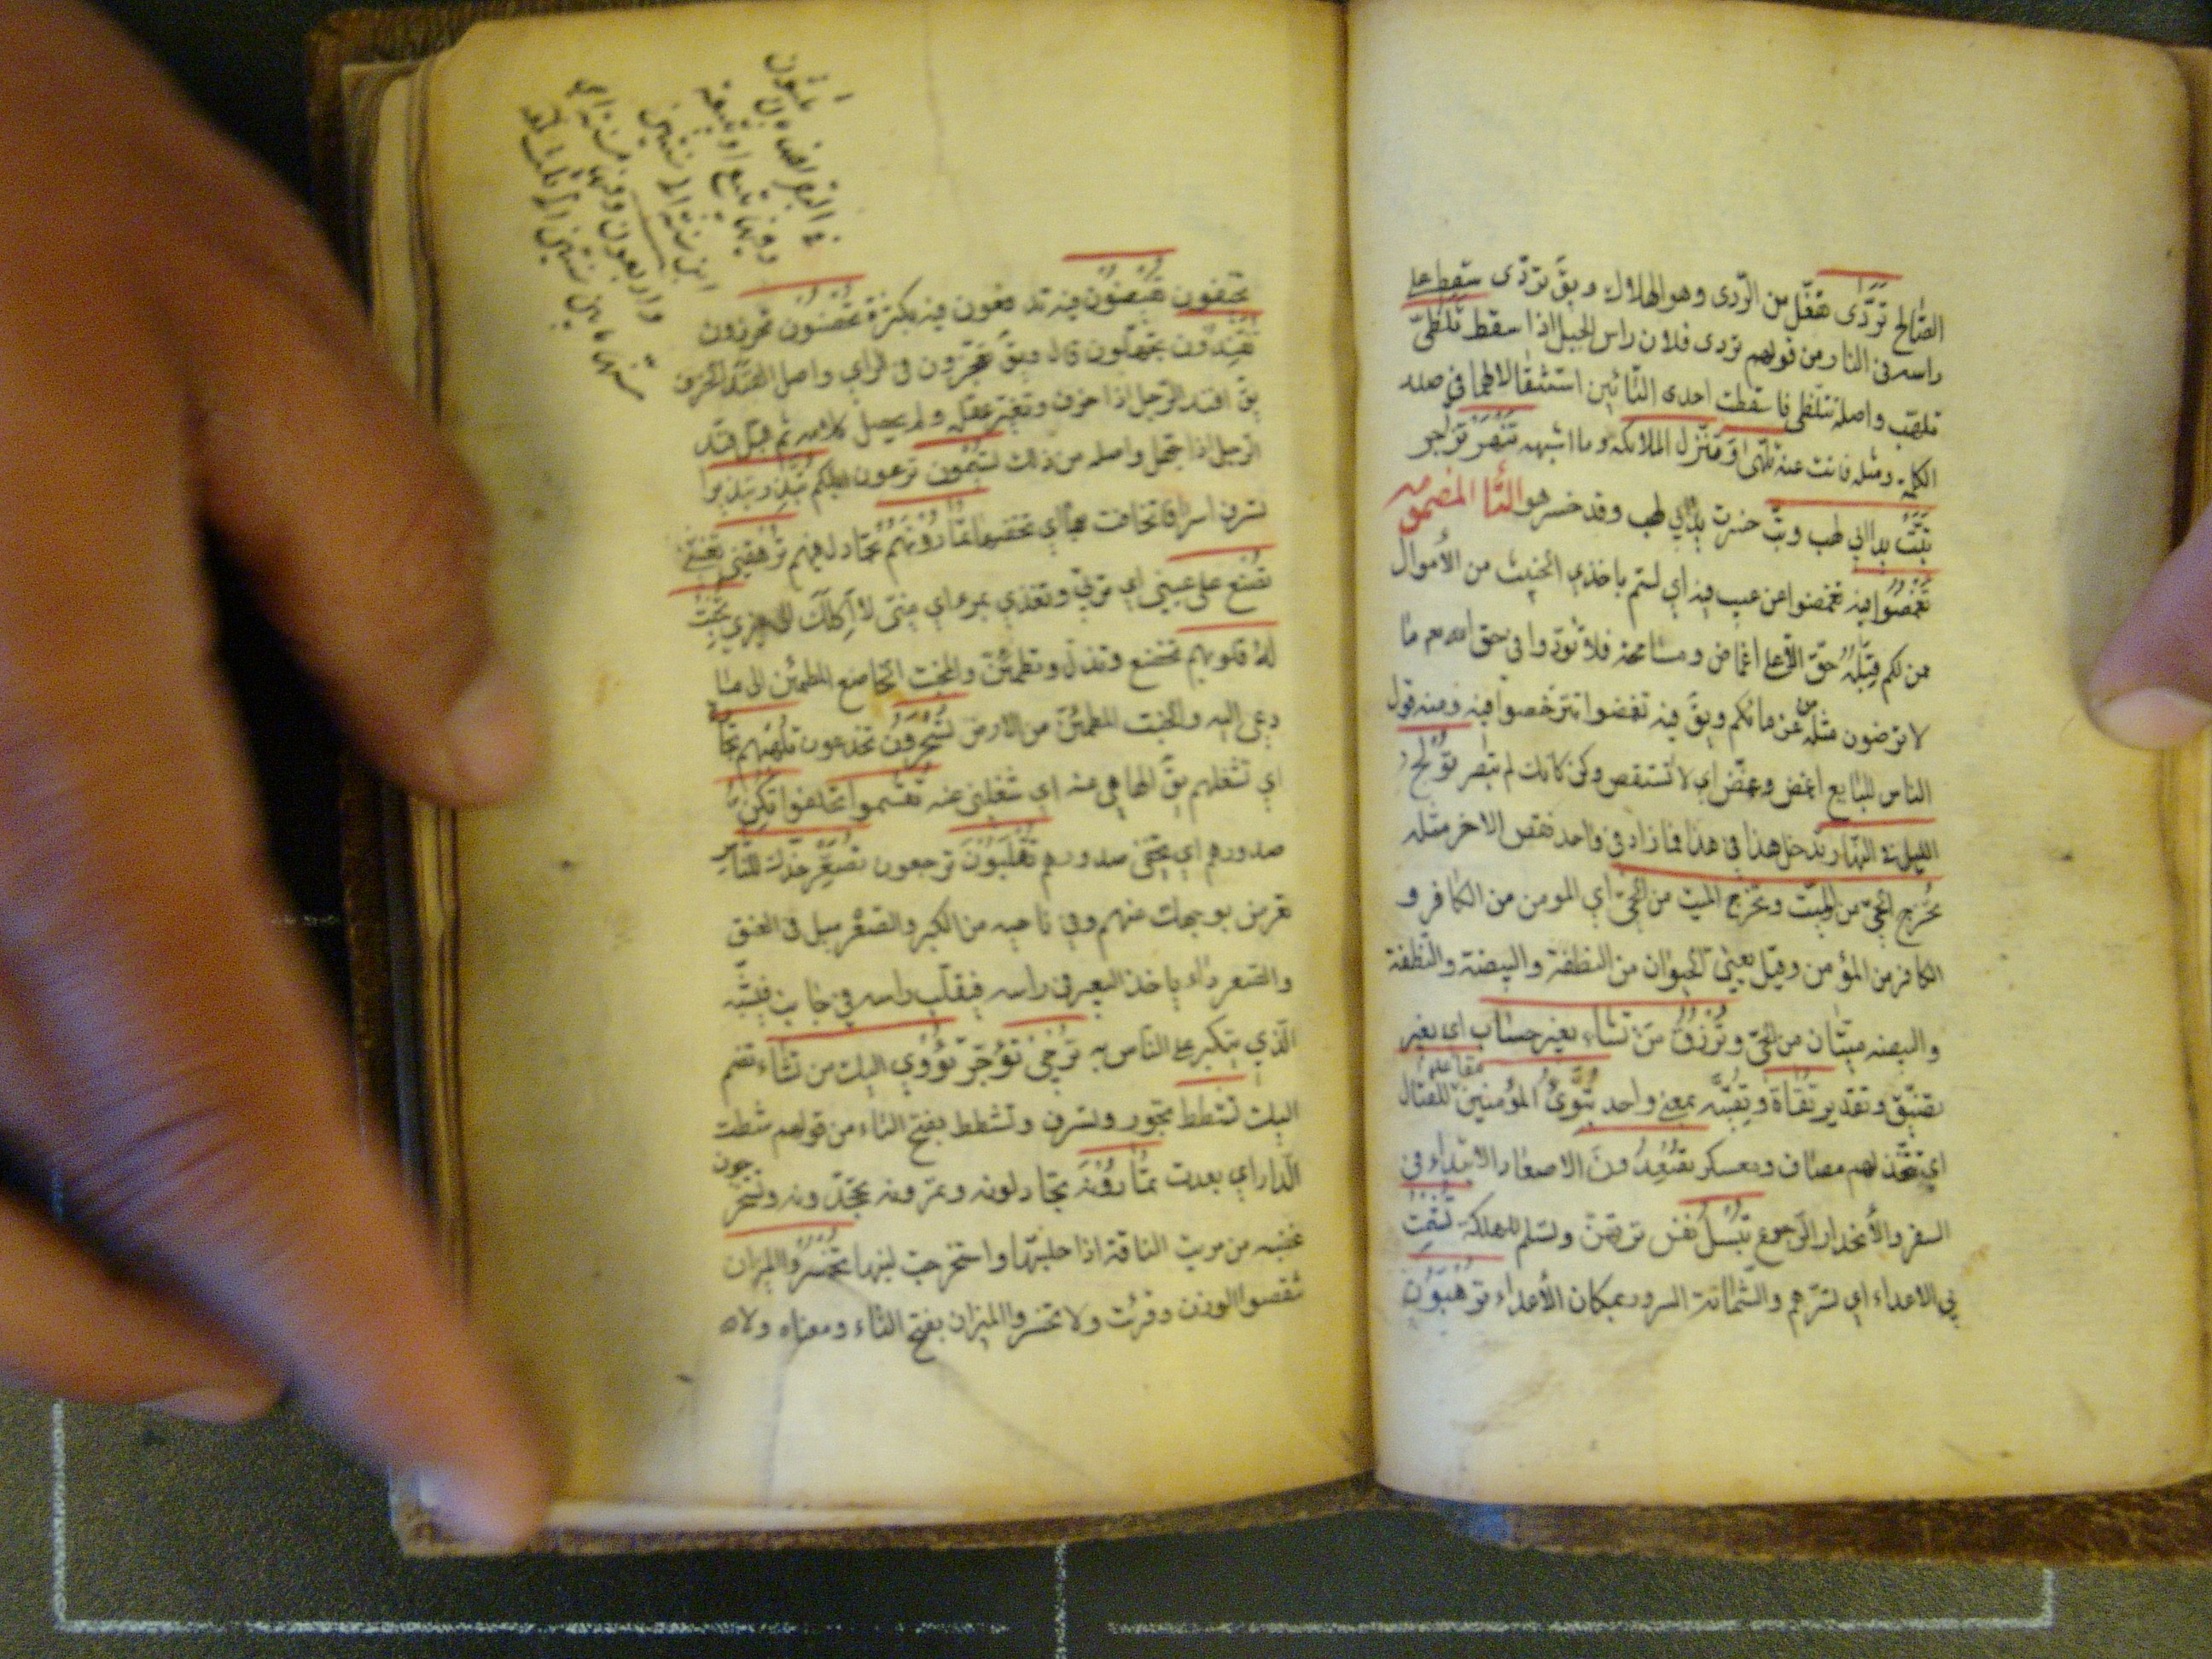 الصالح تَرَدّى تفعّل من الردى وهو الهلاك ويق تردّى سقط على
راسه في النار من قولهم تردى فلان راس الجبل اذا سقط تلظّى
تلهّب واصله تتلظى فاسقطت احدى التائين استثقالا لهما في صدر
الكلمة ومثله فانت عنه تلهّى وتنزل الملائكة وما اشبهه تنهر تزجر
تَبَّتْ يدا ابي لهب وتبّ خسرت يدا ابي لهب وقد خسر هو التاء المضمومه
تُغْمِضُوا فيه تغمضوا عن عيب فيه اي لستم باخذي الخبيث من الأموال
ممن لكم قِبَلَهُ حقّ الا على اغماض ومسامحة فلا تؤدوا في حق الله مما
لا ترضون مثله من غرمائكم ويقَ فيه تغمضوا تترخصوا فيه ومنه قول
الناس للبايع اغمض وغمّض اي لا تستقص وكن كانك لم تبصر تُوْلِجُ
الليل في النهار تدخل هذا في هذا فما زاد في واحد نقص الاخر مثله
تُخْرِجُ الحيّ من الميّت وتخرج الميت من الحيّ اي المومن من الكافر و
الكافر من المؤمن وقيل يعني الحيوان من النطفة والبيضة والنطفة
والبيضه ميتتان من الحيّ وتُرْزَقُ مَنْ تشاء بغير حساب اي بغير
تضيّق وتقدير تقاة وتقيّه بمعنى واحد تُبَوِّئُ المؤمنين مقاعد للقتال
اي تتّخذ لهم مصاف ومعسكر تُصْعِدُونَ الاصعاد الابتداء في
السفر والأنحدار الرجوع تُبْسَلَ نفس ترتهن وتسلم للهلكة تُشْمِتْ
بي الاعداء اي تسرّهم والشماتة السرور بمكان الأعداء تُرْهِبُوْن
تخيفون تُفِيْضُوْن فيه تدفعون فيه بكثرة تُحْصِنُون تحرزون
تُفَنِّدُون تجهّلون قال ويقَ تعجّزون في الراي واصل الفَنَد الخرف
يق افند الرّجل اذا خرف وتغير عقله ولم يحصل كلامه ثم قيل فنّد
الرجل اذا جهل واصله من ذلك تُسِيْمُون ترعون ابلكم تُبَذِّر تبذيرا
تسرف اسرافا تخافت بها اي تخفيها تُمَارُوْنَهُمْ تجادلهم تُرْهِقْنِي تغشني
تُصْنَع على عيني اي تربّى وتغذى بمرءاي منّي لا اكلك الى غيري تُخْبِت
له قلوبهم تخضع وتذلّ وتطمئنّ والمخبت الخاضع المطمئن الى ما
دعي اليه والخبت المطمئنّ من الارض تُسْحَرُوْنَ تخدعون تُلْهِيهِم تجارة
اي تشغلهم يقَ الهاهي عنه اي شغلني عنه تقسموا تحلفوا تُكِنُّ
صدورهم اي تخفى صدورهم تُقْلَبُوْنَ ترجعون تُصَعِّرْ خدّك للناس
تعرض بوجهك عنهم وفي ناحيه من الكبر والصعر ميل في العنق
والصعر داء ياخذ البعير في راسه فيقلب راسه في جانب فيشبّه
الّذي يتكبر على الناس به تُرْجِي تُؤَخِّر تُؤْوِي اليك من تشاء تضم
اليك تُشْطِط تجور وتسرف وتشطط بفتح التاء من قولهم شطت
الدار اي بعدت تُمَارُوْنَهُ تجادلونه وتمرونه تجحدونه وتستخرجون
غضبه من مريت الناقة اذا حلبتها واستخرجت لبنها تُخْسِرُوا الميزان
تنقصوا الوزن وقرئت ولا تخسروا الميزان بفتح التاء ومعناه ولا